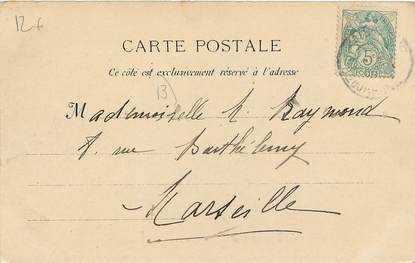 12 €
CARTE POSTALE
Ce côté est exclusivement réservé à l'adresse
13
Mademoiselle R. Raymond
8. rue Barthélemy
Marseille
5